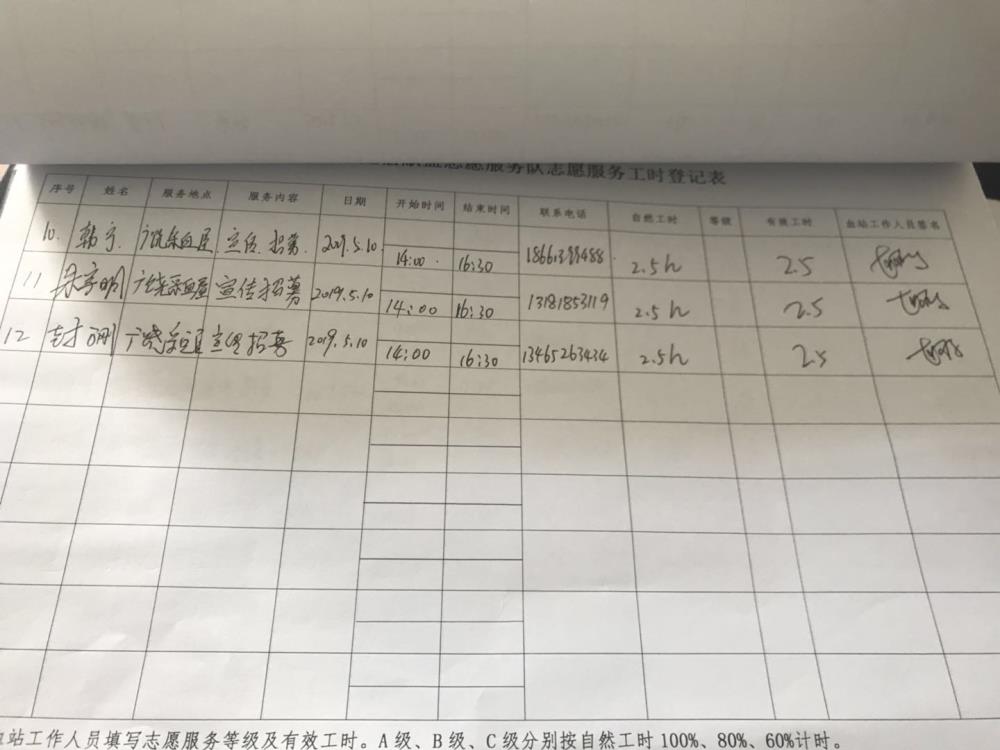 献血志愿服务队志愿服务工时登记表
序号 姓名 服务地点 服务内容 日期 开始时间 结束时间 联系电话 自然工时 等级 有效工时 血站工作人员签名
10. 韩宁 广饶采血屋 宣传.招募. 2019.5.10 14:00 16:30 2.5h 2.5
11 广饶采血屋 宣传招募 2019.5.10 14:00 16:30 13181853119 2.5h 2.5
12 广饶采血屋 宣传招募 2019.5.10 14:00 16:30 13465263434 2.5h 2.5
血站工作人员填写志愿服务等级及有效工时。A级、B级、C级分别按自然工时100%、80%、60%计时。